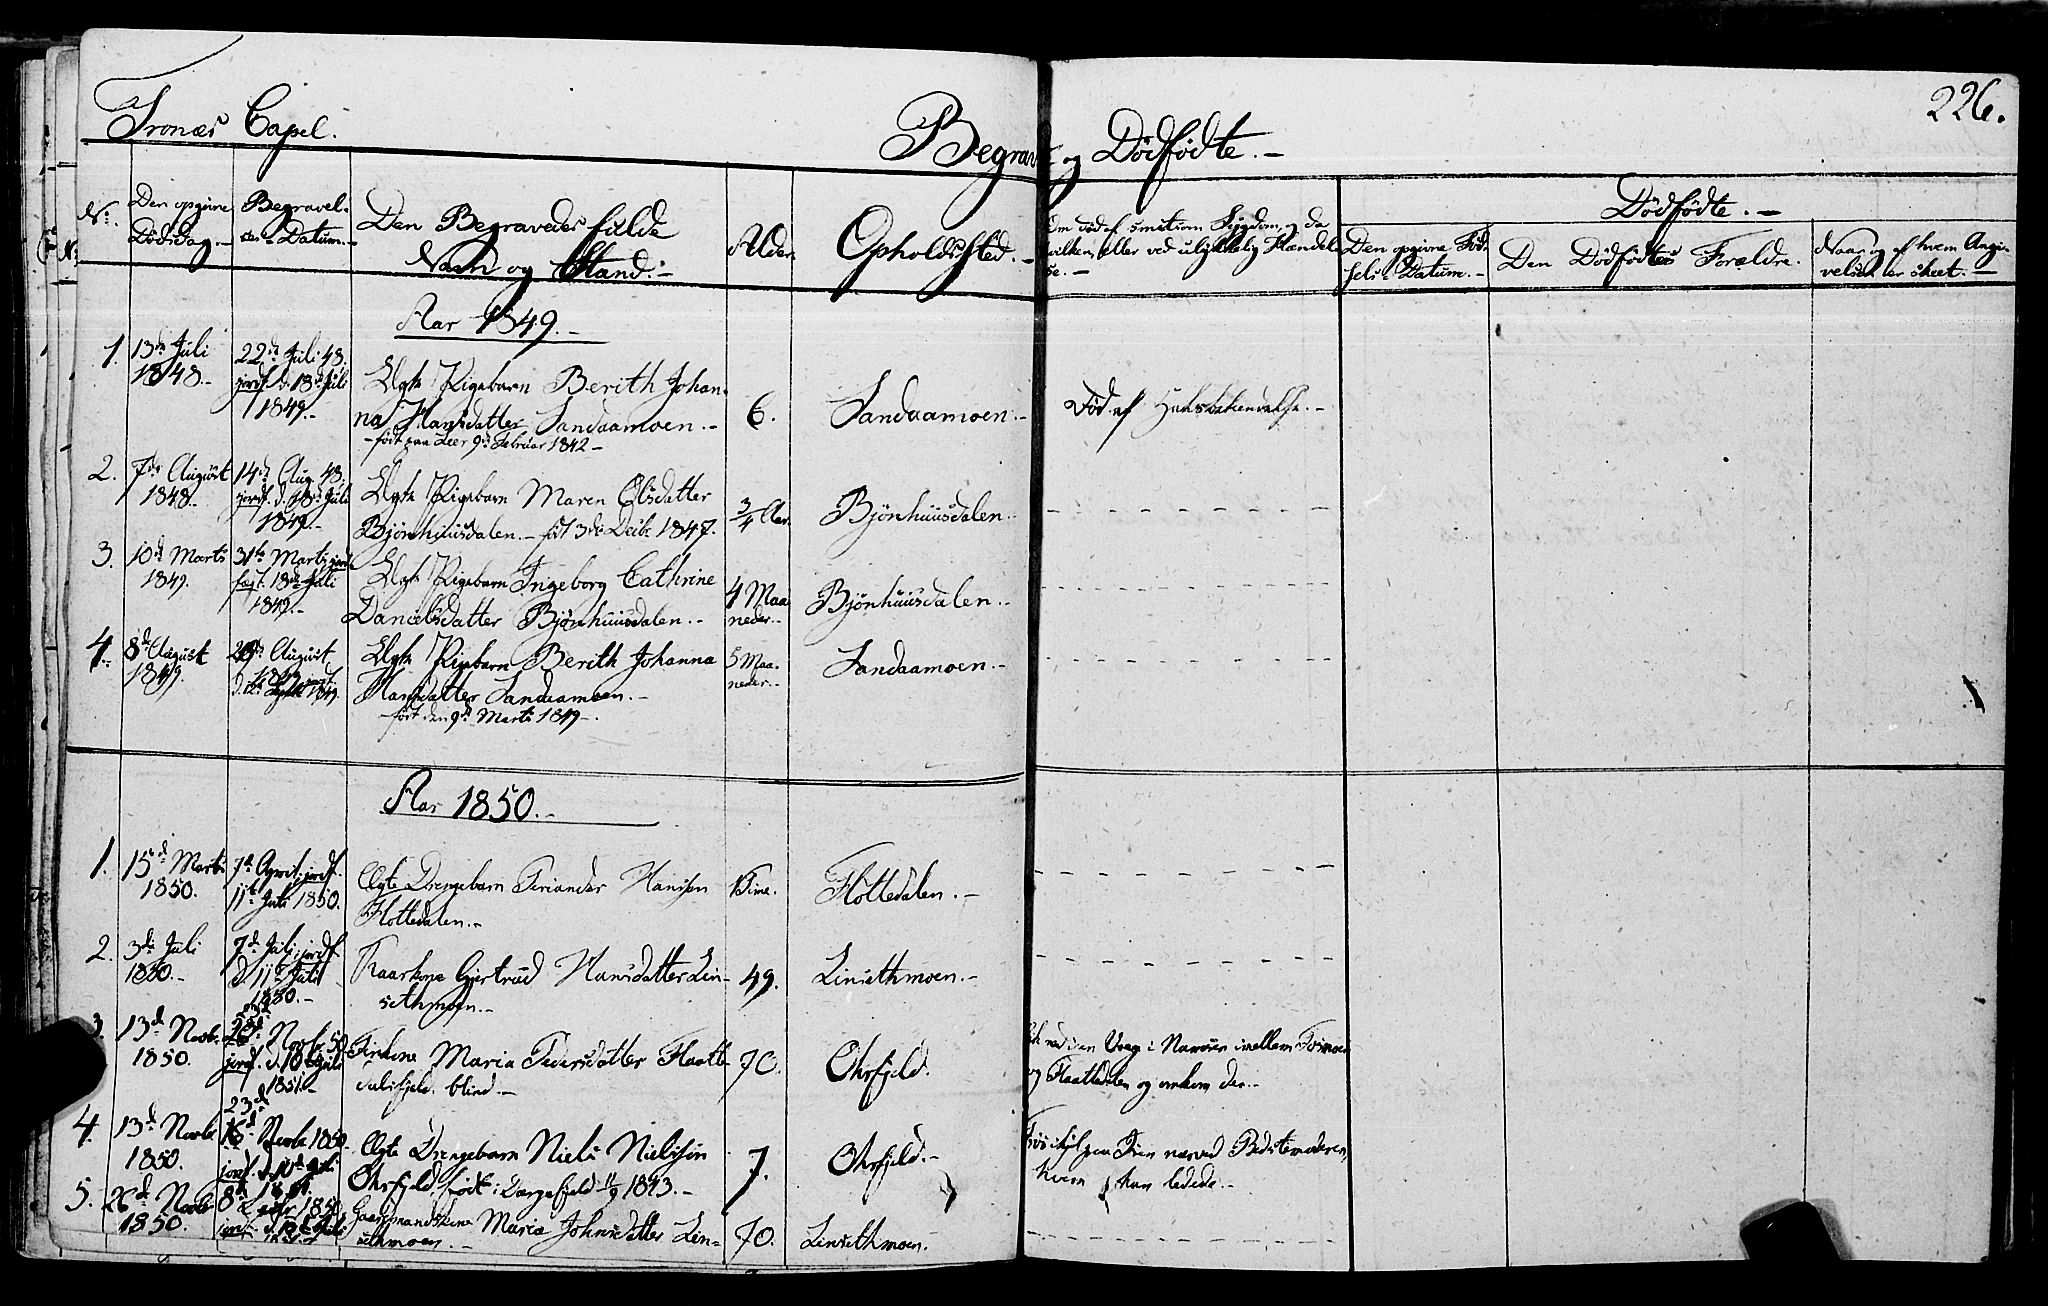 Tronæs Capel.
Begravede og Dødfødte.-
226.
No:
Den opgivne Dødsdag.-
Begravel-
ses-Datum.-
Den Begravedes fulde
Navn og Stand:-
Alder.
Opholdssted.-
Om død af smitsom Sygdom, og da
hvilken, eller ved ulykkelig Hændel-
se.-
Dødfødte.-
Den opgivne Fød-
sels-Datum.-
Den Dødfødtes Forældre.
Naar og af hvem Angi-
velsen er skeet.-
Aar 1849.-
1.
13de Juli
1848.-
22de Juli 48.
jordf. d. 18de Juli
1849.-
Ægte Pigebarn Berith Johan-
na Hansdatter Sandaamoen.-
- født paa Leer 9de Februar 1842-
6.
Sandaamoen.-
Død af Halsbetændelse.-
2.
7de August
1848.-
14de Aug. 48.
jordf. d. 18de Juli
1849.-
Ægte Pigebarn Maren Olsdatter
Bjönhuusdalen.- føt 3de Decbr 1847.
3/4 Aar.
Bjönhuusdalen.-
3.
10de Marts
1849.
31te Marts jord-
fæst. 18de Juli
1849.-
Ægte Pigebarn Ingeborg Cathrine
Danielsdatter Bjönhuusdalen.-
4 Maa-
neder.-
Bjönhuusdalen.-
4.
8de August
1849.
August
1849
Ægte Pigebarn Berith Johanna
Hansdatter Sandaamoen.-
- født den 9de Marts 1849-.
5 Maa-
neder.-
Sandaamoen.-
Aar 1850.-
1.
15de Marts
1850.
7de April; jordf.
11te Juli 1850.
Ægte Drengebarn Feriander Hansen
Flottedalen.-
1 Time.
Flottedalen.-
2.
3de Juli
1850.-
7de Juli, jordf.
d. 11te Juli
1850.-
Kaarkone Gjertrud Hansdatter Lin-
sethmoen.-
49.
Linsethmoen.-
3.
13de Novbr.
1850.
23de
Novbr. 50
jordf. d. 10de Juli
1851.-
Maria Pedersdatter Flaatte-
dalsfjeld. blind.-
70.
Ohrfjeld.
ned i en Vaag i Namsen imellem Fosmoen
og Flaattedalen og omkom der.-
4.
13de Novbr
1850.
23de
Novbr 1850
jordf. d. 10de Juli
Ægte Drengebarn Niels Nielsøn
Ohrfjeld, født i 11/9 1843.-
7.
Ohrfjeld.-
paa Isen nærved Bedstemoderen,
hvem han ledede.-
5.
26de Novbr
1850.
8de Decbr 1850
jordf. d. 10de Juli
1851.-
Gaardmandskone Maria Johnsdatter Lin-
sethmoen.-
70.
Linsethmoen.